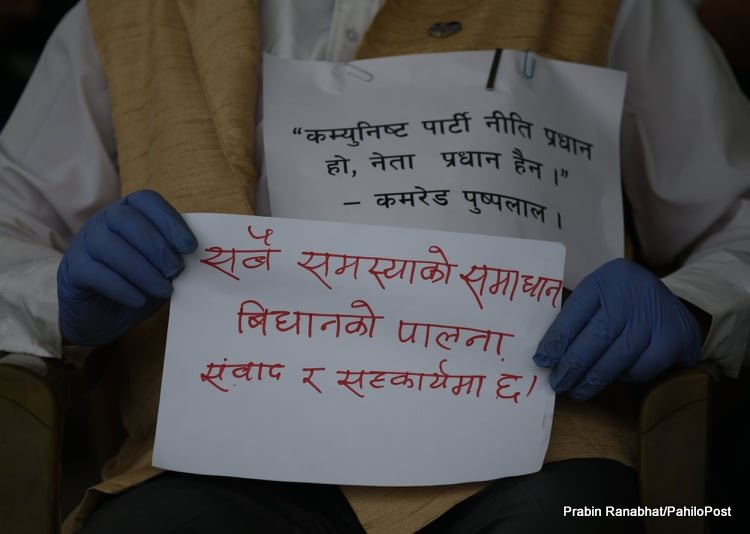 “कम्युनिष्ट पार्टी नीति प्रधान
हो, नेता प्रधान हैन ।”
– कमरेड पुष्पलाल ।
सबै समस्याको समाधान
बिधानको पालना,
संवाद र सहकार्यमा छ।
Prabin Ranabhat/PahiloPost